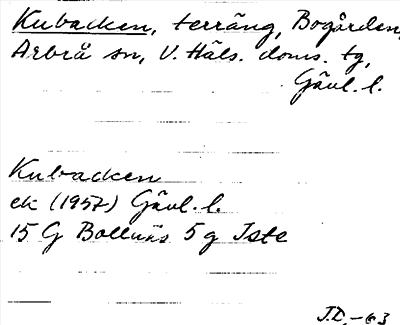 Kubacken, terräng, Bogården,
Arbrå sn, V. Häls. doms. tg,
Gävl. l.
Kubacken
ek (1957) Gävl. l.
15 G Bollnäs 5 g Iste
J.D.-63